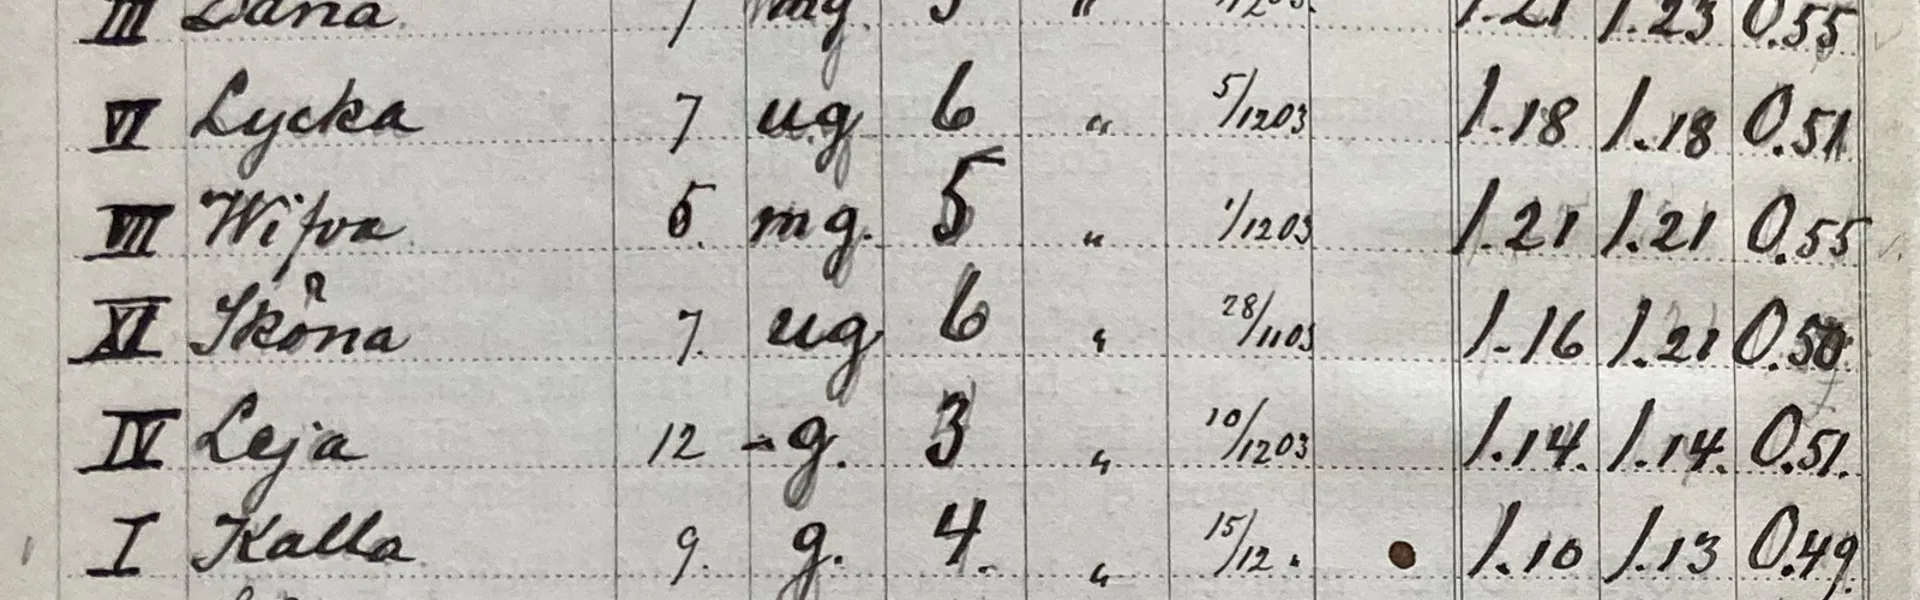 III Dana 7 mg. 5 " /1203. 1.21 1.23 0.55
VI Lycka 7 ug 6 " 5/1203 1.18 1.18 0.51
VII Wifva 6. mg. 5 " 1/1203 1.21 1.21 0.55
XI Sköna 7. ug 6 " 28/1103 1.16 1.21 0.50
IV Leja 12 -g. 3 " 10/1203 1.14. 1.14. 0.51.
I Kalla 9. g. 4. " 15/12 " 1.10 1.13 0.49.